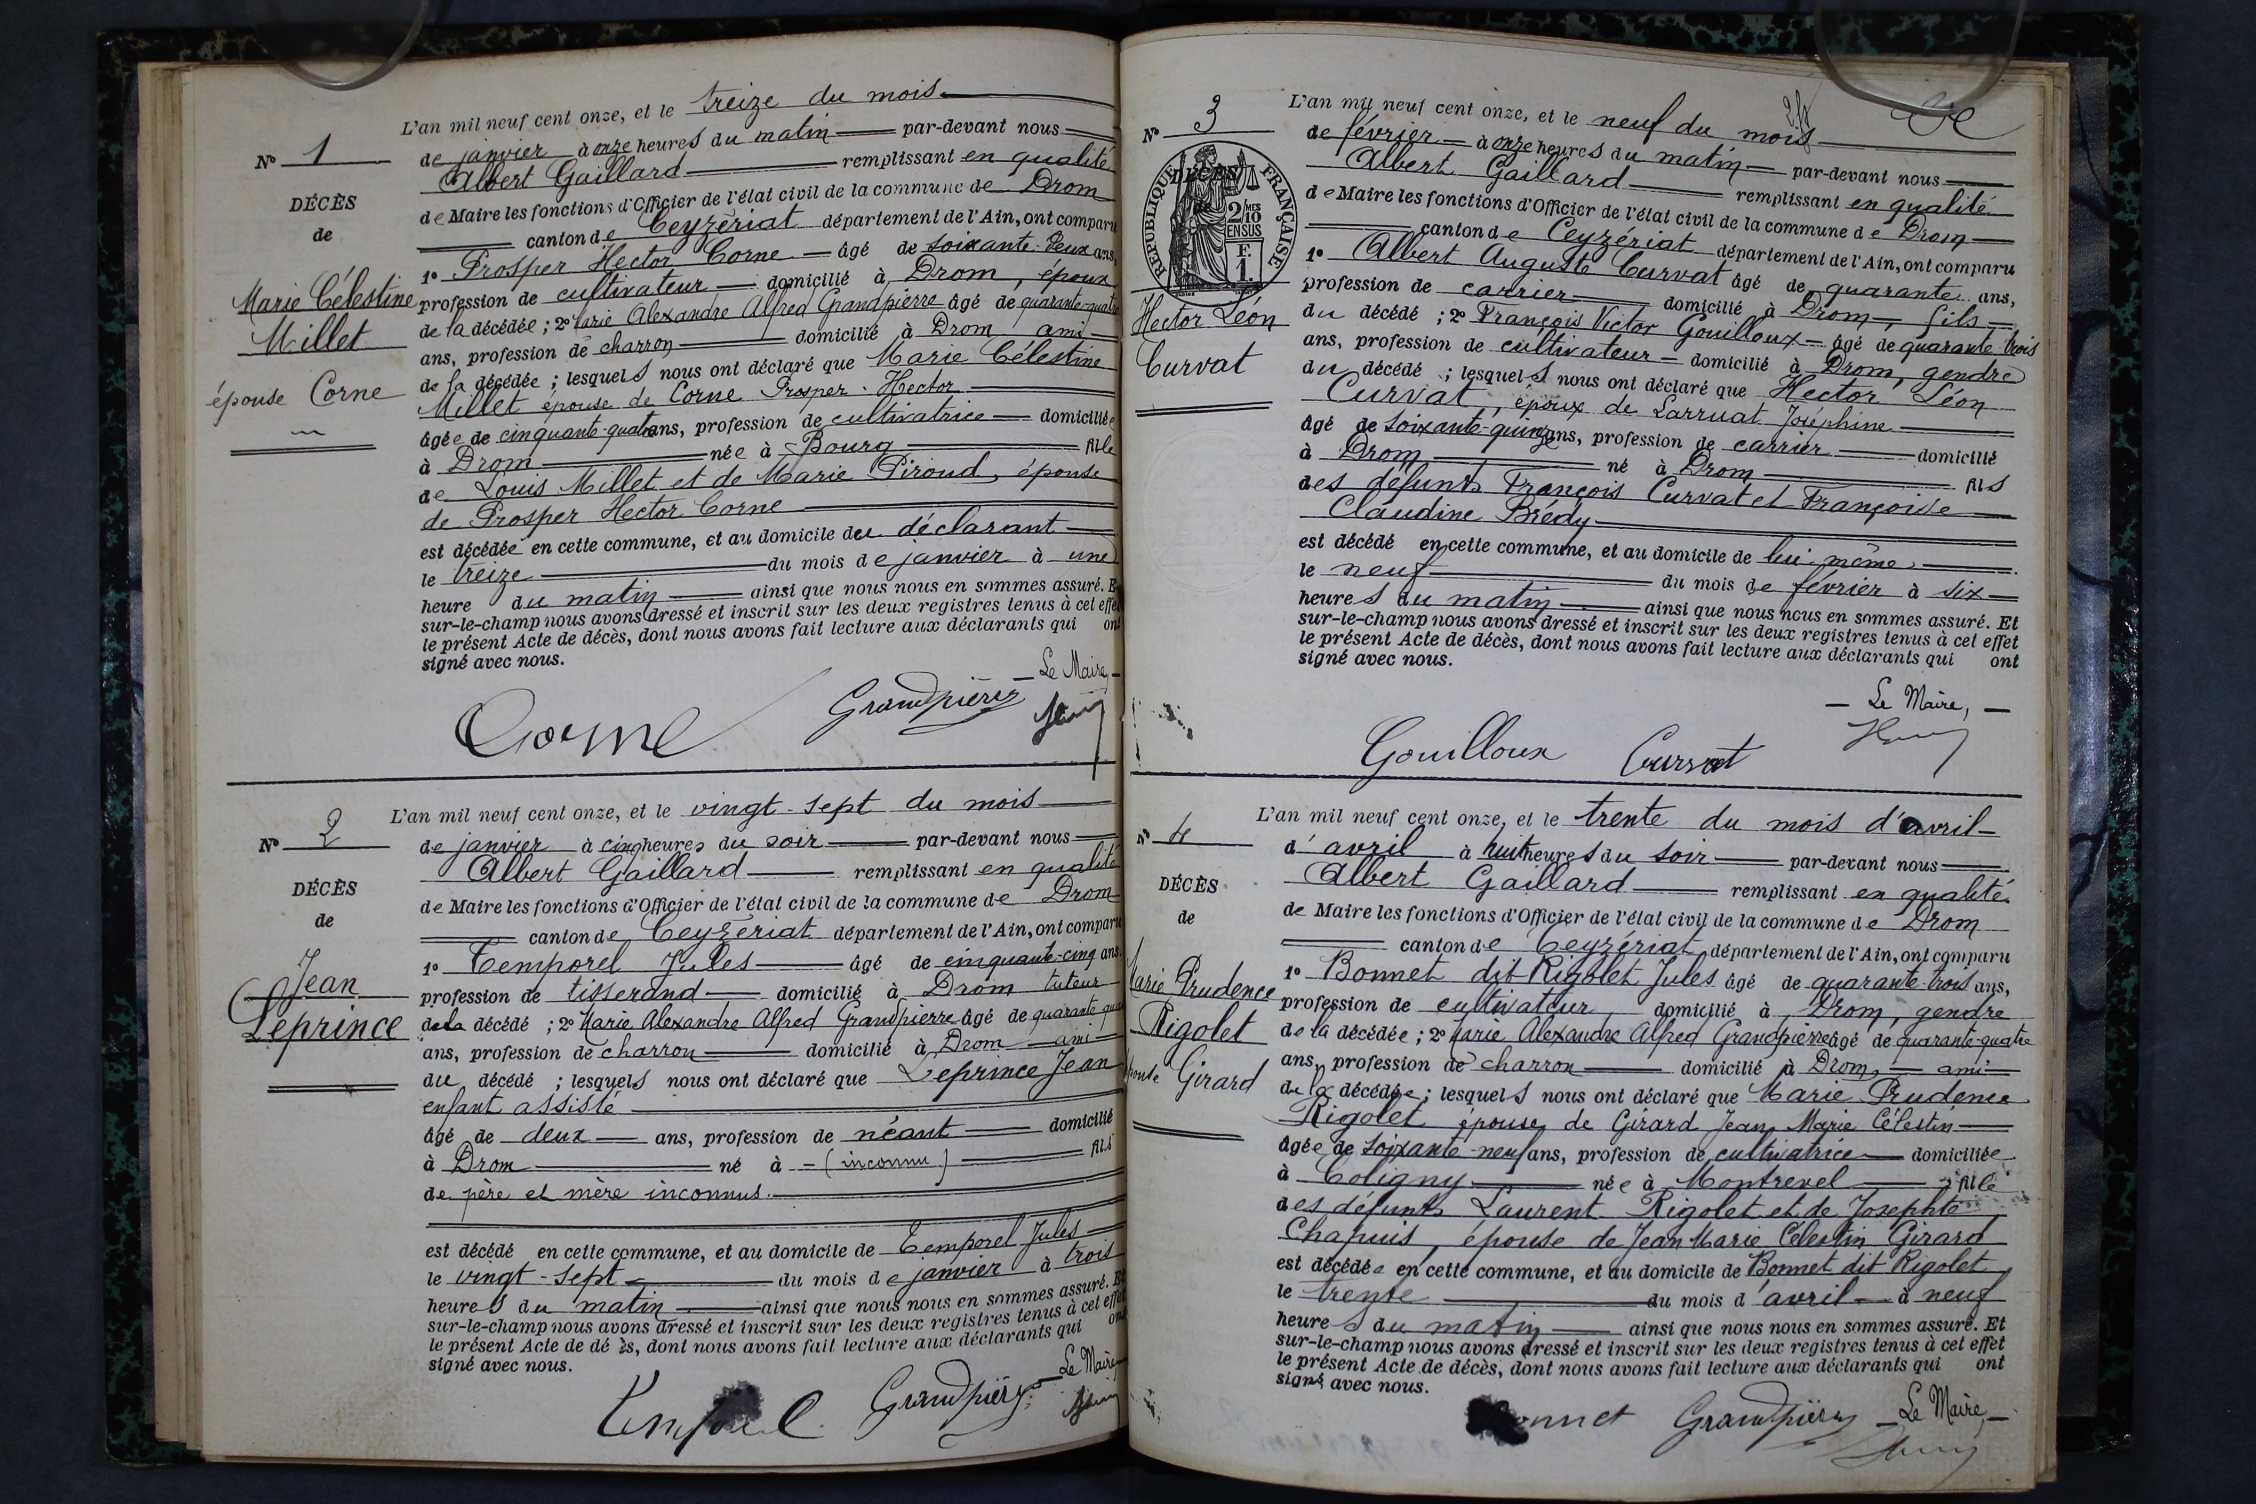 L'an mil neuf cent onze, et le treize du mois
N° 1
de janvier à onze heures du matin par-devant nous
Albert Gaillard remplissant en qualité
DÉCÈS
de Maire les fonctions d'Officier de l'état civil de la commune de Drom
de
canton de Ceyzériat département de l'Ain, ont comparu
1° Prosper Hector Corne âgé de soixante-deux ans,
Marie Célestine
profession de cultivateur domicilié à Drom, époux
de la décédée ; 2° Marie Alexandre Alfred Grandpierre âgé de quarante-quatre
Millet
ans, profession de charron domicilié à Drom ami
de la décédée ; lesquels nous ont déclaré que Marie Célestine
épouse Corne
Millet épouse de Corne Prosper-Hector
âgée de cinquante-quatre ans, profession de cultivatrice domiciliée
à Drom née à Bourg fille
de Louis Millet et de Marie Piroud, épouse
de Prosper Hector Corne
est décédée en cette commune, et au domicile du déclarant
le treize du mois de janvier à une
heure du matin ainsi que nous nous en sommes assuré. Et
sur-le-champ nous avons dressé et inscrit sur les deux registres tenus à cet effet
le présent Acte de décès, dont nous avons fait lecture aux déclarants qui ont
signé avec nous.
Le Maire,
Corne Grandpierre
L'an mil neuf cent onze, et le vingt-sept du mois
N° 2
de janvier à cinq heures du soir par-devant nous
Albert Gaillard remplissant en qualité
DÉCÈS
de Maire les fonctions d'Officier de l'état civil de la commune de Drom
de
canton de Ceyzériat département de l'Ain, ont comparu
1° Temporel Jules âgé de cinquante-cinq ans
Jean
profession de tisserand domicilié à Drom tuteur
Leprince
de la décédé ; 2° Marie Alexandre Alfred Grandpierre âgé de quarante-quatre
ans, profession de charron domicilié à Drom ami
du décédé ; lesquels nous ont déclaré que Leprince Jean
enfant assisté
âgé de deux ans, profession de néant domicilié
à Drom né à (inconnu) fils
de père et mère inconnus.
est décédé en cette commune, et au domicile de Temporel Jules
le vingt-sept du mois de janvier à trois
heures du matin ainsi que nous nous en sommes assuré. Et
sur-le-champ nous avons dressé et inscrit sur les deux registres tenus à cet effet
le présent Acte de dé ès, dont nous avons fait lecture aux déclarants qui ont
signé avec nous.
Le Maire,
Temporel Grandpierre
L'an mil neuf cent onze, et le neuf du mois
N° 3
de février à onze heures du matin par-devant nous
Albert Gaillard remplissant en qualité
DÉCÈS
RÉPUBLIQUE FRANÇAISE
2 MES
10
EN SUS
F.
1.
de Maire les fonctions d'Officier de l'état civil de la commune de Drom
canton de Ceyzériat département de l'Ain, ont comparu
1° Albert Auguste Curvat âgé de quarante ans,
profession de carrier domicilié à Drom, fils
Hector Léon
du décédé ; 2° François Victor Gouilloux âgé de quarante-trois
ans, profession de cultivateur domicilié à Drom, gendre
Curvat
du décédé ; lesquels nous ont déclaré que Hector Léon
Curvat, époux de Larruat Joséphine
âgé de soixante-quinze ans, profession de carrier domicilié
à Drom né à Drom fils
des défunts François Curvat et Françoise
Claudine Brédy
est décédé en cette commune, et au domicile de lui-même
le neuf du mois de février à six
heures du matin ainsi que nous nous en sommes assuré. Et
sur-le-champ nous avons dressé et inscrit sur les deux registres tenus à cet effet
le présent Acte de décès, dont nous avons fait lecture aux déclarants qui ont
signé avec nous.
Le Maire,
Gouilloux Curvat
L'an mil neuf cent onze, et le trente du mois d'avril
N° 4
d'avril à huit heures du soir par-devant nous
Albert Gaillard remplissant en qualité
DÉCÈS
de Maire les fonctions d'Officier de l'état civil de la commune de Drom
de
canton de Ceyzériat département de l'Ain, ont comparu
1° Bonnet dit Rigolet Jules âgé de quarante-trois ans,
Marie Prudence
profession de cultivateur domicilié à Drom, gendre
Rigolet
de la décédée ; 2° Marie Alexandre Alfred Grandpierre âgé de quarante-quatre
ans, profession de charron domicilié à Drom, ami
épouse Girard
de la décédée ; lesquels nous ont déclaré que Marie Prudence
Rigolet épouse de Girard Jean Marie Célestin
âgée de soixante-neuf ans, profession de cultivatrice domiciliée
à Coligny née à Montrevel fille
des défunts Laurent Rigolet et de Josephte
Chapuis, épouse de Jean Marie Célestin Girard
est décédée en cette commune, et au domicile de Bonnet dit Rigolet
le trente du mois d'avril à neuf
heures du matin ainsi que nous nous en sommes assuré. Et
sur-le-champ nous avons dressé et inscrit sur les deux registres tenus à cet effet
le présent Acte de décès, dont nous avons fait lecture aux déclarants qui ont
signé avec nous.
Le Maire,
Bonnet Grandpierre